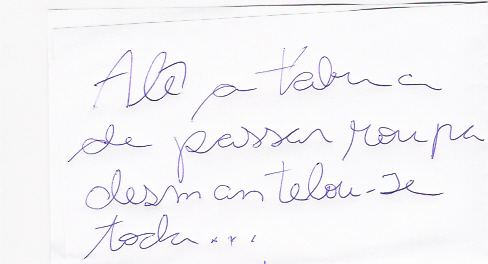 Até a tábua
de passar roupa
desmantelou-se
toda...